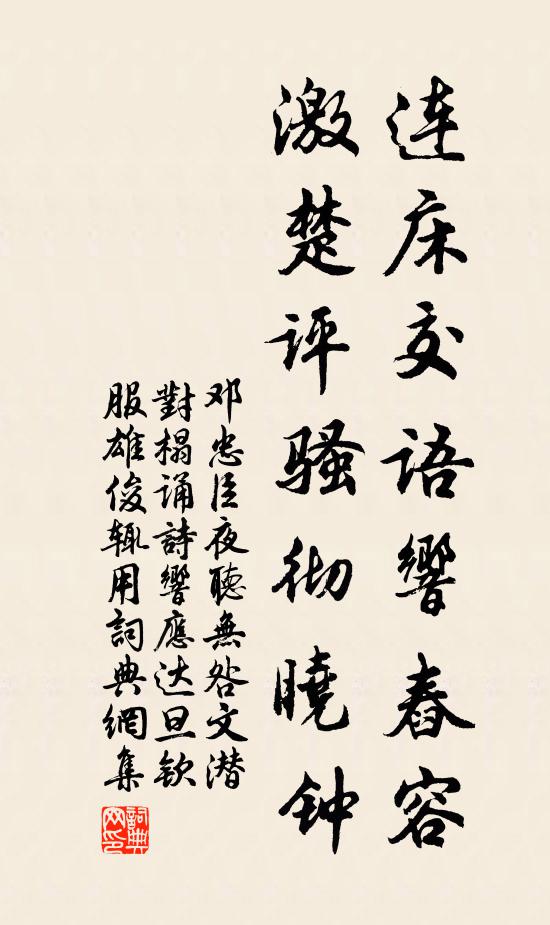 连床交语響舂容
激楚评骚彻曉钟
邓忠臣夜聽無咎文潜
對榻诵詩響應达旦钦
服雄俊辄用詞典網集
詞典
网印